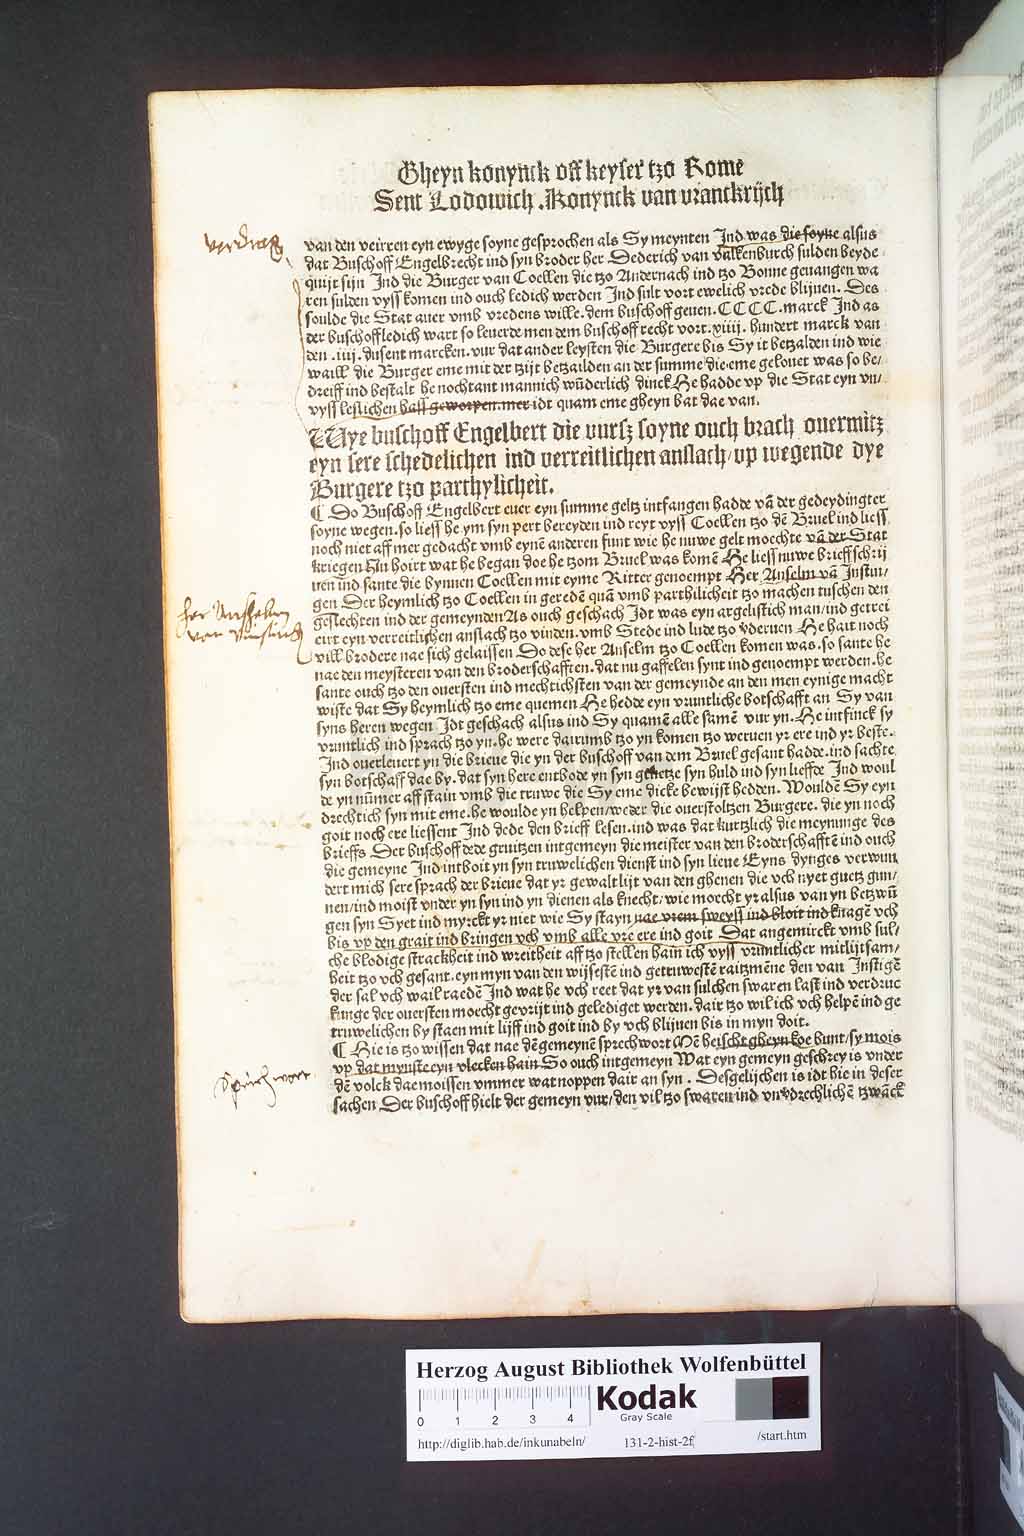 Gheyn konynck off keyser tzo Rome
Sent Lodowich .Konynck van vranckrijch
verdrag
van den veirren eyn ewyge soyne gesprochen als Sy meynten Ind was die soyne alsus
dat Buschoff Engelbrecht ind syn broder her Dederich van Valkenburch sulden beyde
quijt sijn Ind die Burger van Coellen die tzo Andernach ind tzo Bonne geuangen wa
ren sulden vyss komen ind ouch ledich werden Ind sult vort ewelich vrede blijuen. Des
soulde die Stat auer vmb vredens wille. dem buschoff geuen. CCCC. marck Ind as
der buschoff ledich wart so leuerde men dem buschoff recht vort .xiiii. hundert marck van
den .iiij. dusent marcken. vur dat ander leysten die Burgere bis Sy it betzalden ind wie
waill die Burger eme mit der tzijt betzailden an der summe die eme gelouet was so be/
dreiff ind bestalt he nochtant mannich wūderlich dinck He hadde vp die Stat eyn vn/
vyss leslichen hass geworpen. mer idt quam eme gheyn bat dae van.
Wye buschoff Engelbert die vursz soyne ouch brach ouermitz
eyn sere schedelichen ind verreitlichen anslach/ vp wegende dye
Burgere tzo parthylicheit.
¶ Do Buschoff Engelbert euer eyn summe geltz intfangen hadde vā der gedeydingter
soyne wegen. so liess he ym syn pert bereyden ind reyt vyss Coellen tzo dē Bruel ind liess
noch niet aff mer gedacht vmb eynē anderen funt wie he nuwe gelt moechte vā der Stat
kriegen Nu hoirt wat he began doe he tzom Bruel was komē He liess nuwe brieff schrij
uen ind sante die bynnen Coellen mit eyme Ritter genoempt Her Anselm vā Justin/
gen Der heymlich tzo Coellen in geredē quā vmb parthilicheit tzo machen tuschen den
her Anshelm
von Vinsting
geslechten ind der gemeynden As ouch geschach Idt was eyn argelistich man/ ind getrei
eirt eyn verreitlichen anslach tzo vinden. vmb Stede ind lude tzo v̄deruen He hait noch
vill brodere nae sich gelaissen Do dese her Anselm tzo Coellen komen was. so sante he
nae den meysteren van den broderschafften. dat nu gaffelen synt ind genoempt werden. he
sante ouch tzo den ouersten ind mechtichsten van der gemeynde an den men eynige macht
wiste dat Sy heymlich tzo eme quemen He hedde eyn vruntliche botschafft an Sy van
syns heren wegen Idt geschach alsus ind Sy quamē alle samē vur yn. He intfinck sy
vruntlich ind sprach tzo yn. he were dairumb tzo yn komen tzo weruen yr ere ind yr beste.
Ind ouerleuert yn die brieue die yn der buschoff van dem Bruel gesant hadde. ind sachte
syn botschaff dae by. dat syn here entbode yn syn gehetze syn huld ind syn lieffde Ind woul
de yn nūmer aff stain vmb die truwe die Sy eme dicke bewijst hedden. Wouldē Sy eyn
drechtich syn mit eme. he woulde yn helpen/ weder die ouerstoltzen Burgere. die yn noch
goit noch ere liessent Ind dede den brieff lesen. ind was dat kurtzlich die meynunge des
brieffs Der buschoff dede gruitzen intgemeyn die meister van den broderschafftē ind ouch
die gemeyne Ind intboit yn syn truwelichen dienst ind syn lieue Eyns dynges verwun
dert mich sere sprach der brieue dat yr gewalt lijt van den ghenen die vch nyet guetz gun/
nen/ ind moist vnder yn syn ind yn dienen als knecht/ wie moecht yr alsus van yn betzwū
gen syn Syet ind myrckt yr niet wie Sy stayn nae vrem sweyss ind bloit ind knagē vch
bis vp den grait ind bringen vch vmb alle vre ere ind goit Dat angemirckt vmb sul/
che blodige strackheit ind wreitheit aff tzo stellen hain ich vyss vruntlicher mitlijtsam/
heit tzo vch gesant. eyn myn van den wijsestē ind getruwestē raitzmēne den van Instigē
der sal vch wail raedē Ind wat he vch reet dat yr van sulchen swaren last ind verdruc
kunge der ouersten moecht gevrijt ind gelediget werden. dair tzo wil ich vch helpē ind ge
truwelichen by staen mit lijff ind goit ind by vch blijuen bis in myn doit.
¶ Hie is tzo wissen dat nae dē gemeynē sprechwort Mē heischt gheyn koe bunt/ sy mois
vp dat mynste eyn vlecken hain So ouch intgemeyn Wat eyn gemeyn geschrey is vnder
Sprichwort
dē volck dae moissen vmmer wat noppen dair an syn . Desgelijchen is idt hie in deser
sachen Der buschoff hielt der gemeyn vur/ den vil tzo swaren ind vnv̄drechlichē tzwāck
Herzog August Bibliothek Wolfenbüttel
0 1 2 3 4
Kodak
Gray Scale
http://diglib.hab.de/inkunabeln/ 131-2-hist-2f /start.htm